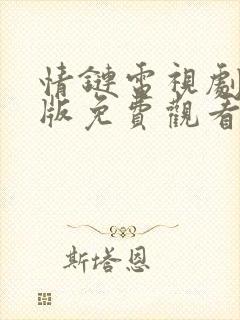 情鏈雷視劇
版免費觀看
斯塔恩